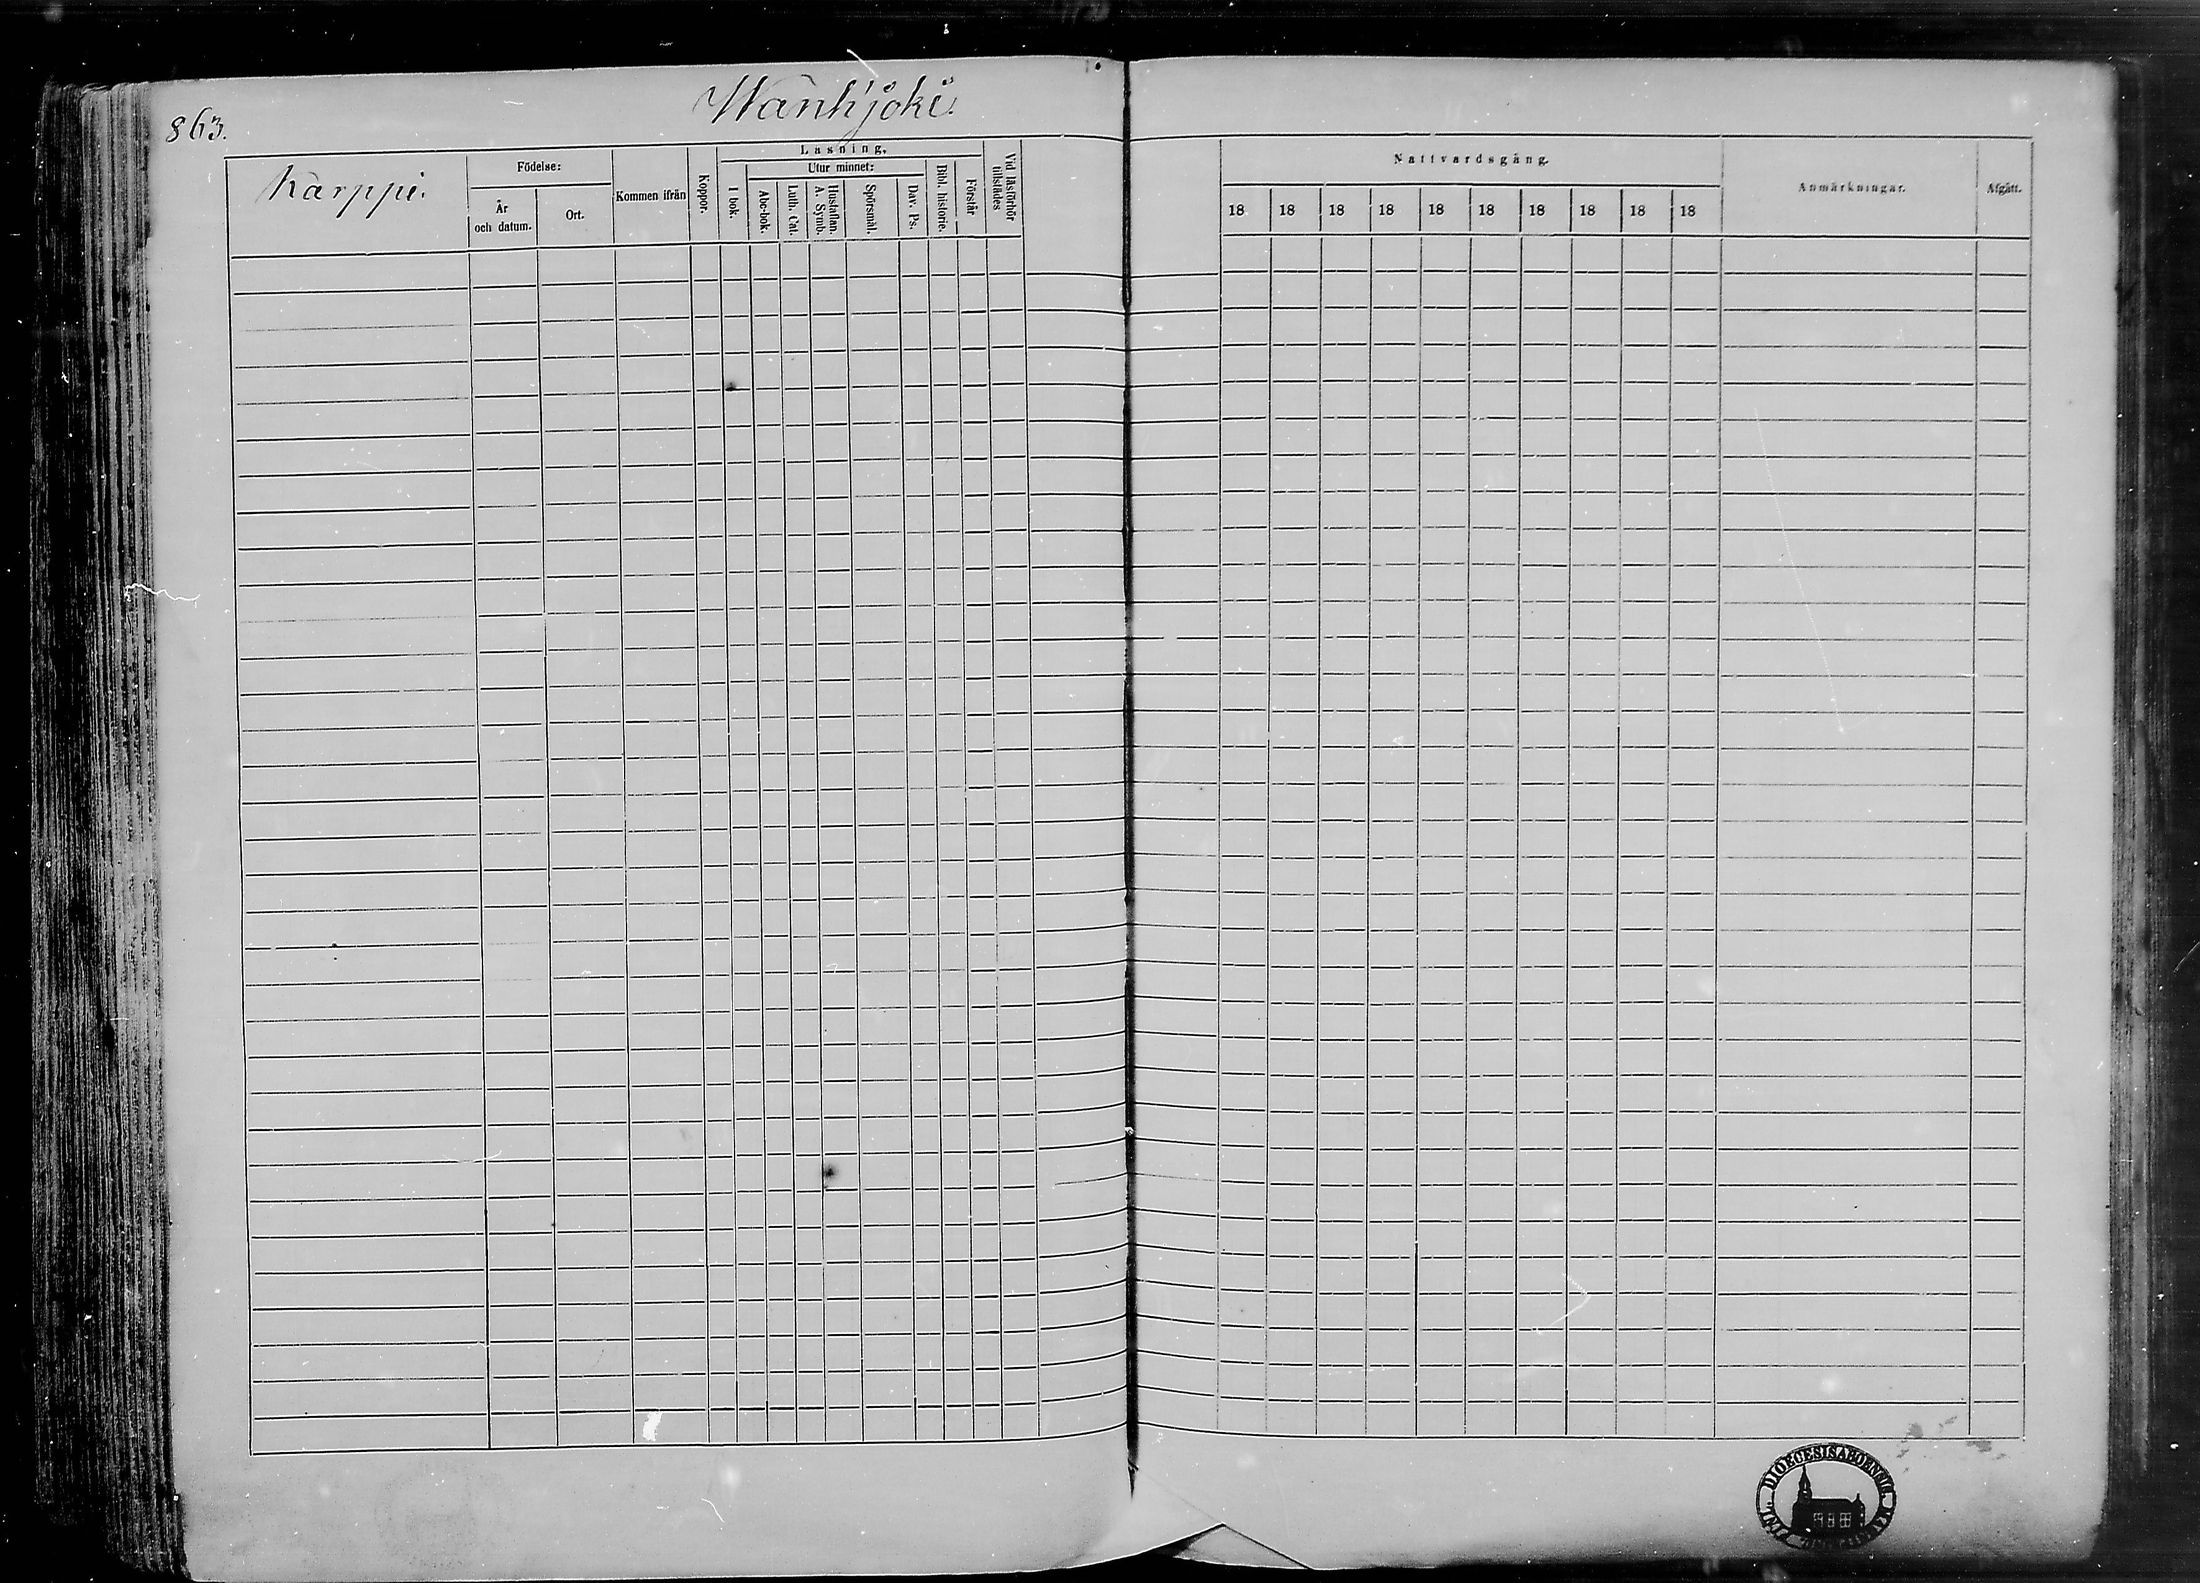 863.
Wanhjoki.
Karppi.
Födelse:
År
och datum.
Ort.
Kommen ifrån
Koppor.
Läsning.
I bok.
Utur minnet:
Abc-bok.
Luth. Cat.
Hustaflan.
A. Symb.
Spörsmål.
Dav. Ps.
Bibl. historie.
Förstår
Vid läsförhör
tillstädes
Nattvardsgång.
18 18 18 18 18 18 18 18 18 18
Anmärkningar.
Afgått.
DIOECESIS ABOENSIS